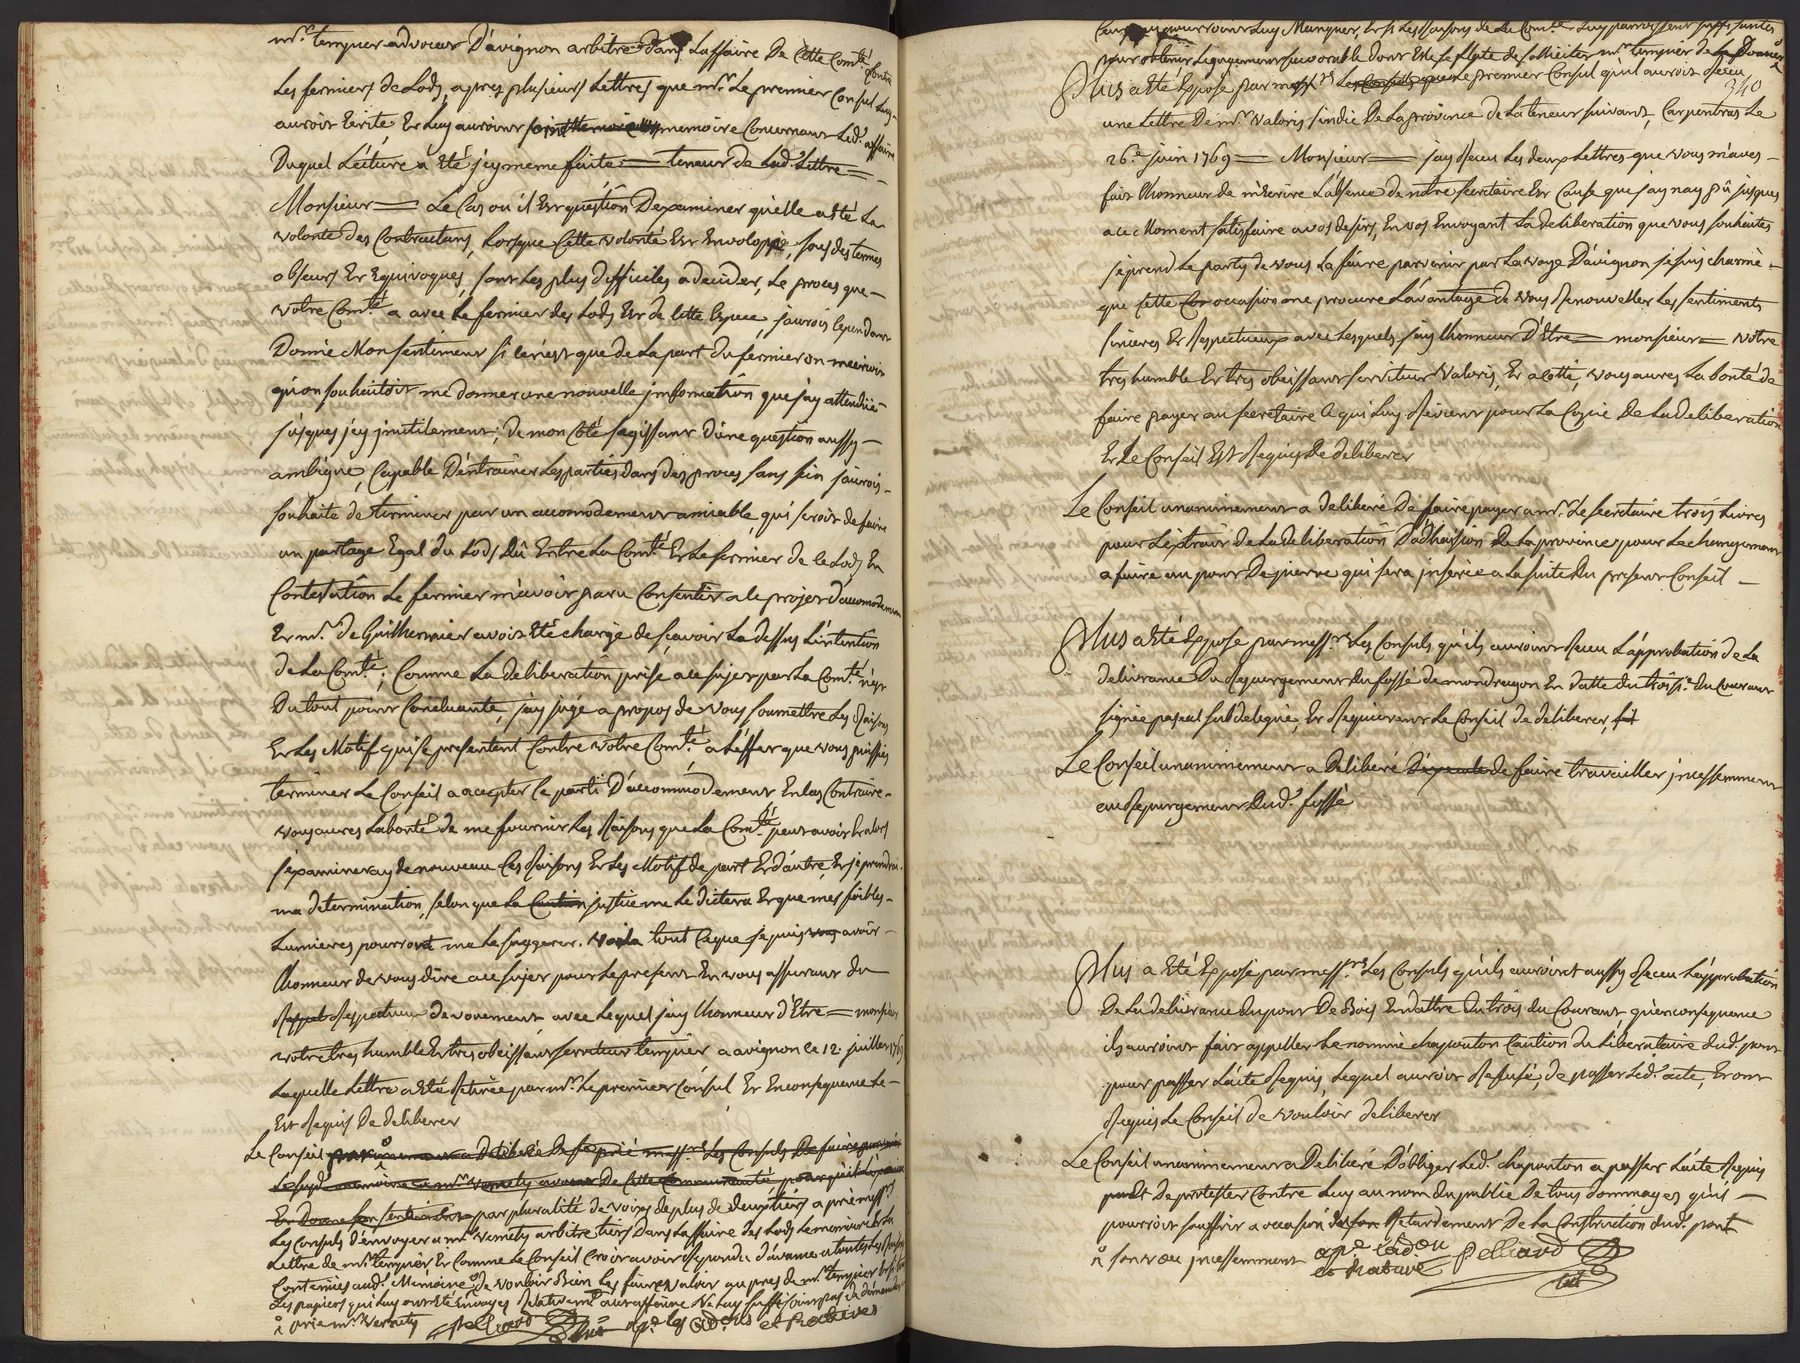 mr. tempier advocat D'avignon arbitre dans Laffaire De Cette Com.té contre
Les fermiers de Lods, apres plusieurs Lettres que mr. Le premier Consul Luy
auroit Ecrite, Et Luy auroint memoire Concernant Led. affaire
Duquel Lecture a Eté jcy meme faite = teneur de Lad. Lettre =
Monsieur = Le Cas ou il Est question Dexaminer qu'elle a eté La
volonté des Contractans, Lorsque Cette volonté Est Envoloppée, sous des termes
obscurs Et Equivoques, sont Les plus difficiles a decider, Le proces que
votre Com.té a avec Le fermier des Lods Est de Cette Espece, j'aurois cependant
Donné Mon sentiment si ce n'est que de La part du fermier on m'ecrivit
qu'on souhaitoit me donner une nouvelle jnformation que j'ay attendüe
jusques jcy jnutilement; de mon Côté s'agissant d'une question aussy
ambigue, Capable D'entrainer Les parties dans des proces sans fin j'aurois
souhaité de terminer par un accomodement amiable, qui seroit de faire
un partage Egal du Lods Dû Entre La Com.té Et Le fermier de ce Lods En
Contestation Le fermier m'avoit paru Consentir a ce projet d'accomodement
Et mr. de Guilhermier avoit Eté chargé de sçavoir La dessus L'intention
de La Com.té; Comme La deliberation prise a ce sujet par La Com.té n'est
Du tout point Concluante, j'ay jugé a propos de vous soumettre Les Raisons
Et Les Motifs qui se presentent Contre votre Com.té, a L'effet que vous puissiés
terminer Le Conseil a accepter Ce parti D'accommodement En Cas Contraire
vous aurés La bonté de me fournir Les Raisons que La Com.té peut avoir Et alors
j'examineray de nouveau Ces Raisons Et Les Motifs de part Et d'autre, Et je prendrai
ma determination, selon que La justice me Le dictera Et que mes foibles
Lumieres pourront me Le suggerer. Voila tout Ce que je puis avoir
Lhonneur de vous dire a ce sujet pour Le present En vous assurant du
Respectueux devouement, avec Lequel j'ay Lhonneur d'Etre = monsieur
votre tres humble Et tres obeissant serviteur tempier a avignon ce 12 juillet
Laquelle Lettre a Eté Retirée par mr. Le premier Consul Et En consequence Le
Est Requis De deliberer
Le Conseil
par pluralité de voix de plus de deux tiers a prié mess.rs
Les Consuls d'envoyer a mr. Vernety arbitre tiers Dans Laffaire des Lods Le memoire Et La
Lettre de mr. tempier Et Comme Le Conseil Croit avoir Repondu d'avance a toutes Les
Contenües aud. Memoire de vouloir Bien Les faire valoir aupres de mr. tempier
Les papiers qui Luy ont Eté Envoyes
prié mr. Vernety Pelliard
pour obtenir Le jugement favorable dont Este Le
Plus a Eté Exposé par Le premier Consul qu'il auroit Receu
340
une Lettre De mr. Valoris sindic De La province de La teneur suivant, Carpentras Le
26.e juin 1769 = Monsieur = j'ay Receu Les deux Lettres que vous m'aves
fait Lhonneur de m'ecrire L'absence de notre secretaire Est Cause que j'ay n'ay pû jusques
a ce Moment satisfaire a vos desirs, En vos Envoyant La deliberation que vous souhaités
je prend Le party de vous La faire parvenir par La voye D'avignon, je suis charmé
que Cette occasion me procure L'avantage de vous Renouveller Les sentiments
sinceres Et Respectueux avec Lesquels j'ay Lhonneur D'Etre = monsieur = votre
tres humble Et tres obeissant serviteur Valoris, Et a coté, vous aures La bonté de
faire payer au secretaire Ce qui Luy Revient pour La Copie De La deliberation
Et Le Conseil Est Requis De deliberer
Le Conseil unanimement a deliberé De faire payer a mr. Le secretaire trois Livres
pour L'extrait de La deliberation D'adhesion De La province pour Le changement
a faire au pont De pierre qui sera jnserée a La suite Du present Conseil
Plus a Eté Exposé par mess.rs Les Consuls qu'ils auroint Receu L'approbation de La
delivrance Du Repurgement Du fossé de mondragon En datte du troisie. Du Courant
signée pascal subdelegué, Et Requierent Le Conseil de deliberer,
Le Conseil unanimement a Deliberé de faire travailler jncessemment
au Repurgement Dud. fossé
Plus a Eté Exposé par mess.rs Les Consuls qu'ils auroint aussy Receu L'approbation
De La delivrance Du pont De Bois En datte Du trois du Courant, qu'en consequence
ils auroint fait appeller Le nommé chapouton Caution Du Liberataire dud. pont
pour passer L'acte Requis, Lequel auroit Refusé, de passer Led. acte, Et ont
Requis Le Conseil de vouloir deliberer
Le Conseil unanimement a Deliberé D'obliger Led. chapouton a passer L'acte Requis
De protester Contre Luy au nom du publie De tous dommages qu'il
pourroit souffrir a occasion du Retardement De La Construction dud. pont
jncessemment Pelliard